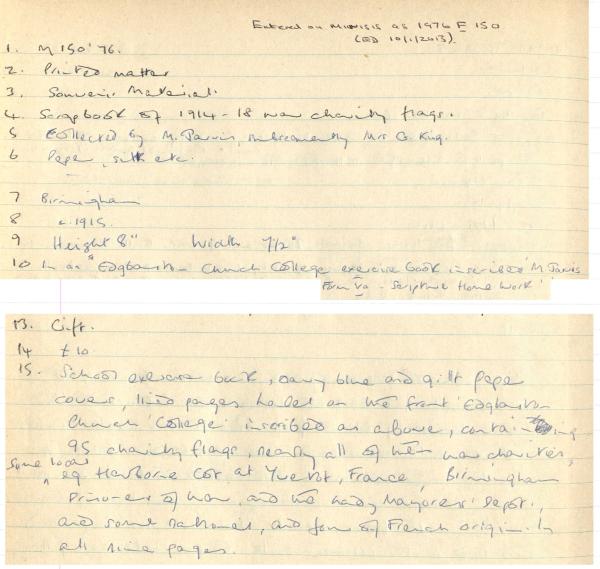 Entered on MIMSIS as 1976 F 150
(ED 10/1/2013)
1. M 150' 76.
2. Printed matter
3. Souvenir Material.
4. Scrapbook of 1914-18 war charity flags.
5 Collected by M. Jarvis, subsequently Mrs G. King.
6 Paper, silk etc.
7 Birmingham
8 c. 1915.
9 Height 8" Width 7 1/2"
10 In an "Edgbaston Church College exercise book inscribed 'M Jarvis
Form Va - Scripture Home Work'
13. Gift.
14 £10
15. School exercise book, navy blue and gilt paper
covers, lined pages labelled on the front 'Edgbaston
Church College' inscribed as above, containing
95 charity flags, nearly all of them war charities,
some local
eg Harborne Cot at Yvetot, France, Birmingham
Prisoners of War, and the Lady Mayoress' Depot.,
and some national, and four of French origin. In
all nine pages.